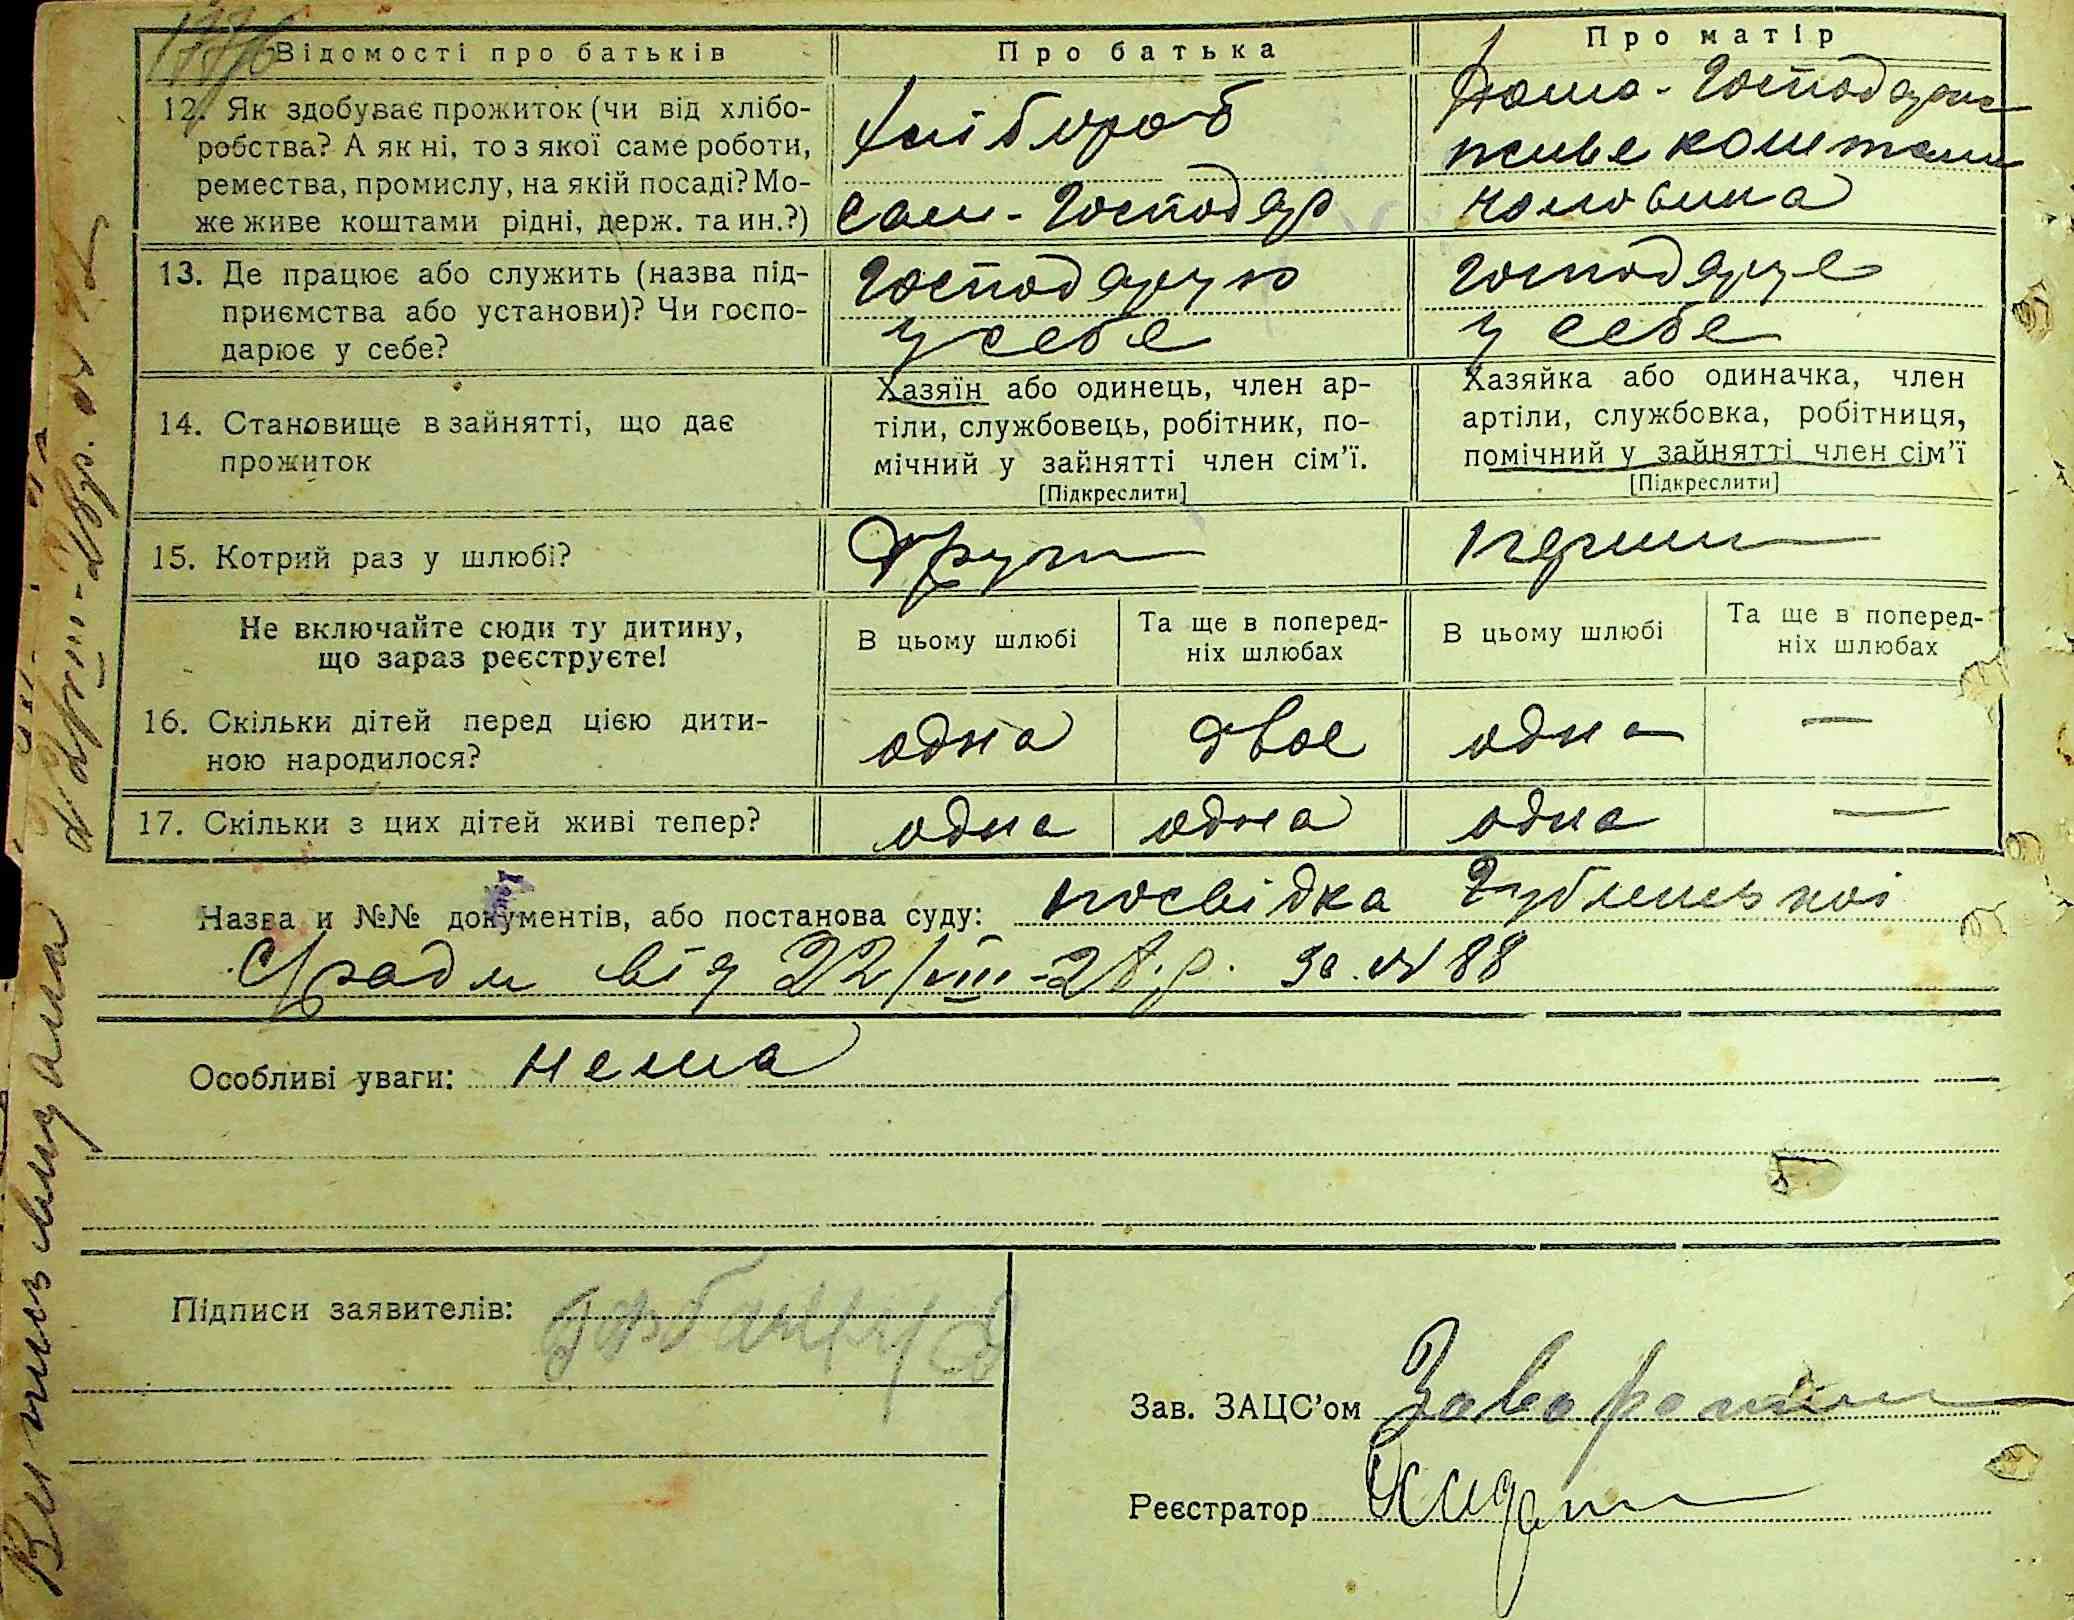 Відомості про батьків
Про батька
Про матір
12. Як здобуває прожиток (чи від хлібо-
робства? А як ні, то з якої саме роботи,
ремества, промислу, на якій посаді? Мо-
же живе коштами рідні, держ. та ин.?)
Хлібороб
сам-господар
Дома-господарює
живе коштами
чоловіка
13. Де працює або служить (назва під-
приємства або установи)? Чи госпо-
дарює у себе?
Господарує
у себе
господарує
у себе
14. Становище в зайнятті, що дає
прожиток
Хазяїн або одинець, член ар-
тіли, службовець, робітник, по-
мічний у зайнятті член сім’ї.
[Підкреслити]
Хазяйка або одиначка, член
артіли, службовка, робітниця,
помічний у зайнятті член сім’ї
[Підкреслити]
15. Котрий раз у шлюбі?
Други
перши
Не включайте сюди ту дитину,
що зараз реєструєте!
В цьому шлюбі
Та ще в поперед-
ніх шлюбах
В цьому шлюбі
Та ще в поперед-
ніх шлюбах
16. Скільки дітей перед цією дити-
ною народилося?
одна
двое
одна
—
17. Скільки з цих дітей живі тепер?
одна
одна
одна
—
Назва и №№ документів, або постанова суду: посвідка
С/ради від 22/VIII-28.р. за №88
Особливі уваги: нема
Підписи заявителів:
Зав. ЗАЦС’ом
Реєстратор